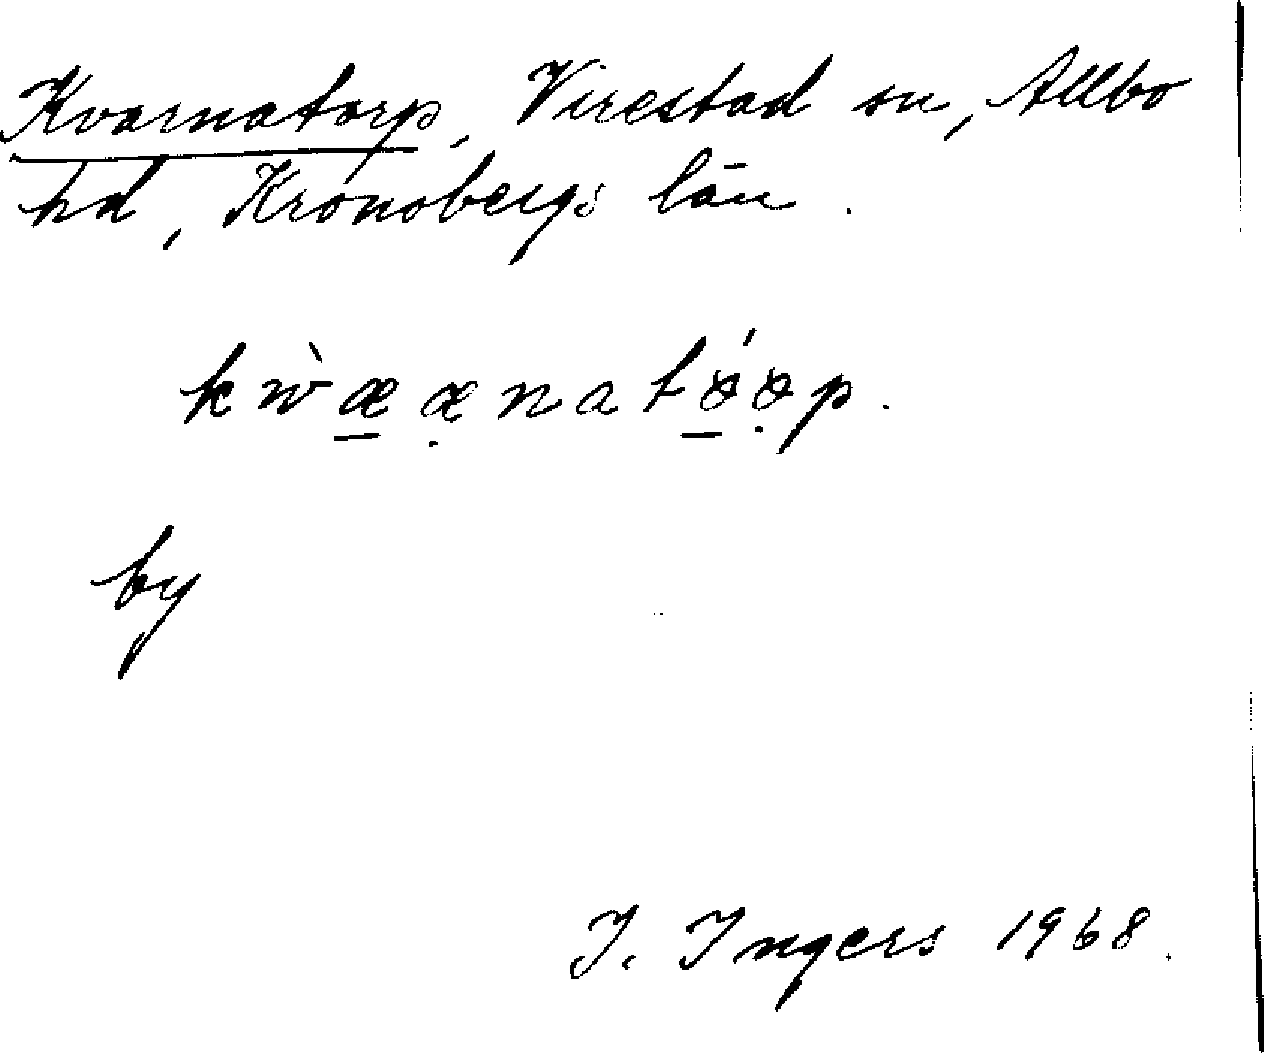 Kvarnatorp, Virestad sn, Allbo
hd, Kronobergs län.
kẁæ̱æ̣nató̱ọp.
by
I. Ingers 1968.